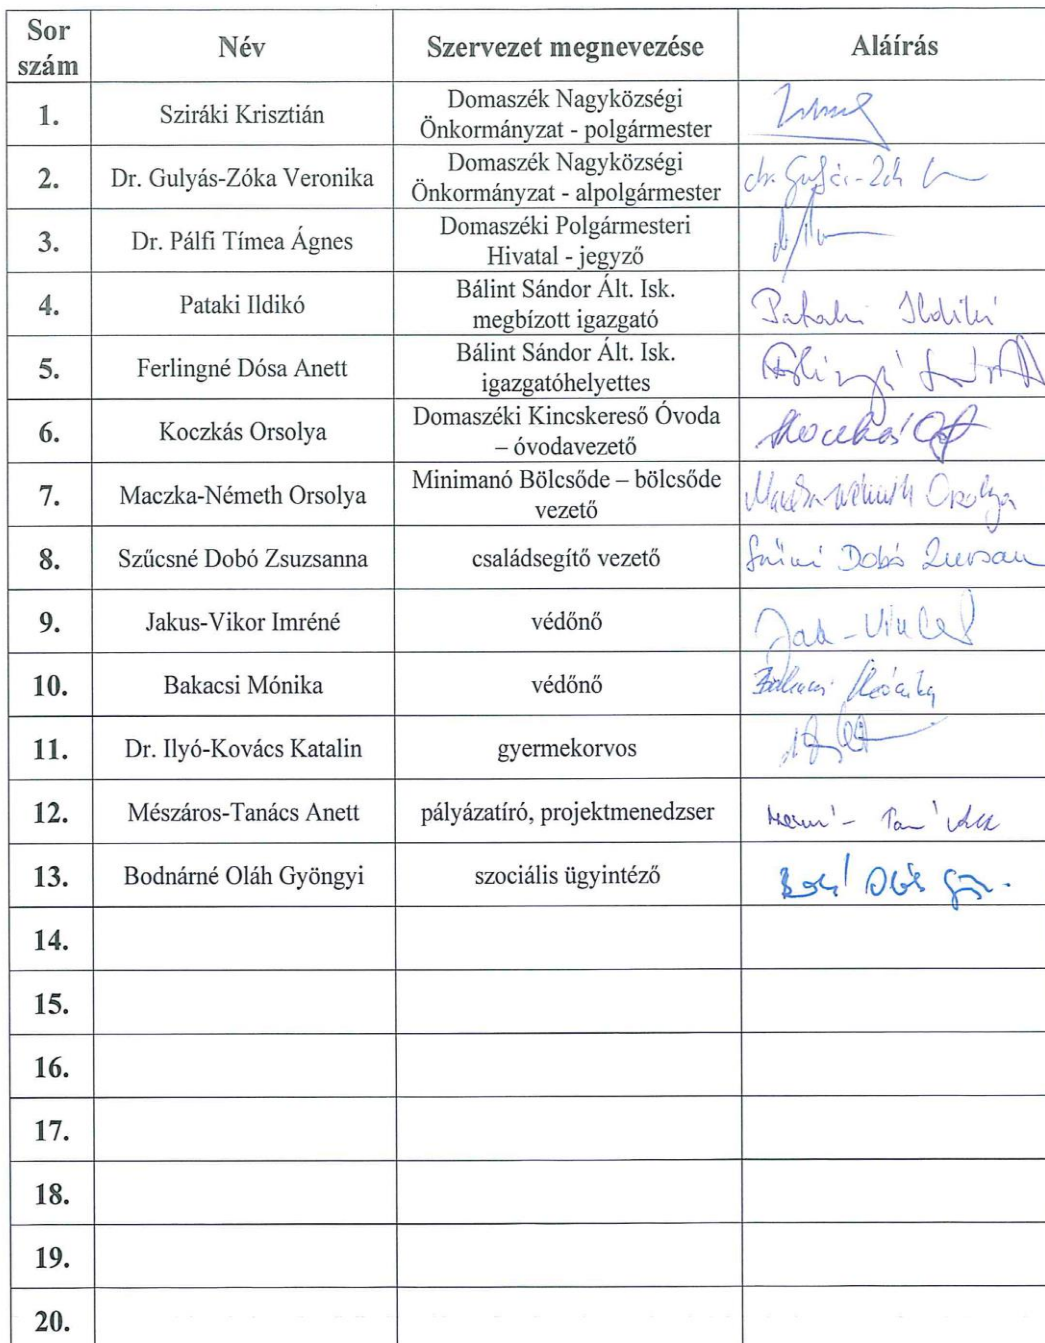 Sor
szám
Név
Szervezet megnevezése
Aláírás
1.
Sziráki Krisztián
Domaszék Nagyközségi
Önkormányzat - polgármester
2.
Dr. Gulyás-Zóka Veronika
Domaszék Nagyközségi
Önkormányzat - alpolgármester
3.
Dr. Pálfi Tímea Ágnes
Domaszéki Polgármesteri
Hivatal - jegyző
4.
Pataki Ildikó
Bálint Sándor Ált. Isk.
megbízott igazgató
Pataki Ildikó
5.
Ferlingné Dósa Anett
Bálint Sándor Ált. Isk.
igazgatóhelyettes
6.
Koczkás Orsolya
Domaszéki Kincskereső Óvoda
– óvodavezető
7.
Maczka-Németh Orsolya
Minimanó Bölcsőde – bölcsőde
vezető
Maczka-Németh Orsolya
8.
Szűcsné Dobó Zsuzsanna
családsegítő vezető
Dobó
9.
Jakus-Vikor Imréné
védőnő
10.
Bakacsi Mónika
védőnő
Bakacsi Mónika
11.
Dr. Ilyó-Kovács Katalin
gyermekorvos
12.
Mészáros-Tanács Anett
pályázatíró, projektmenedzser
13.
Bodnárné Oláh Gyöngyi
szociális ügyintéző
14.
15.
16.
17.
18.
19.
20.